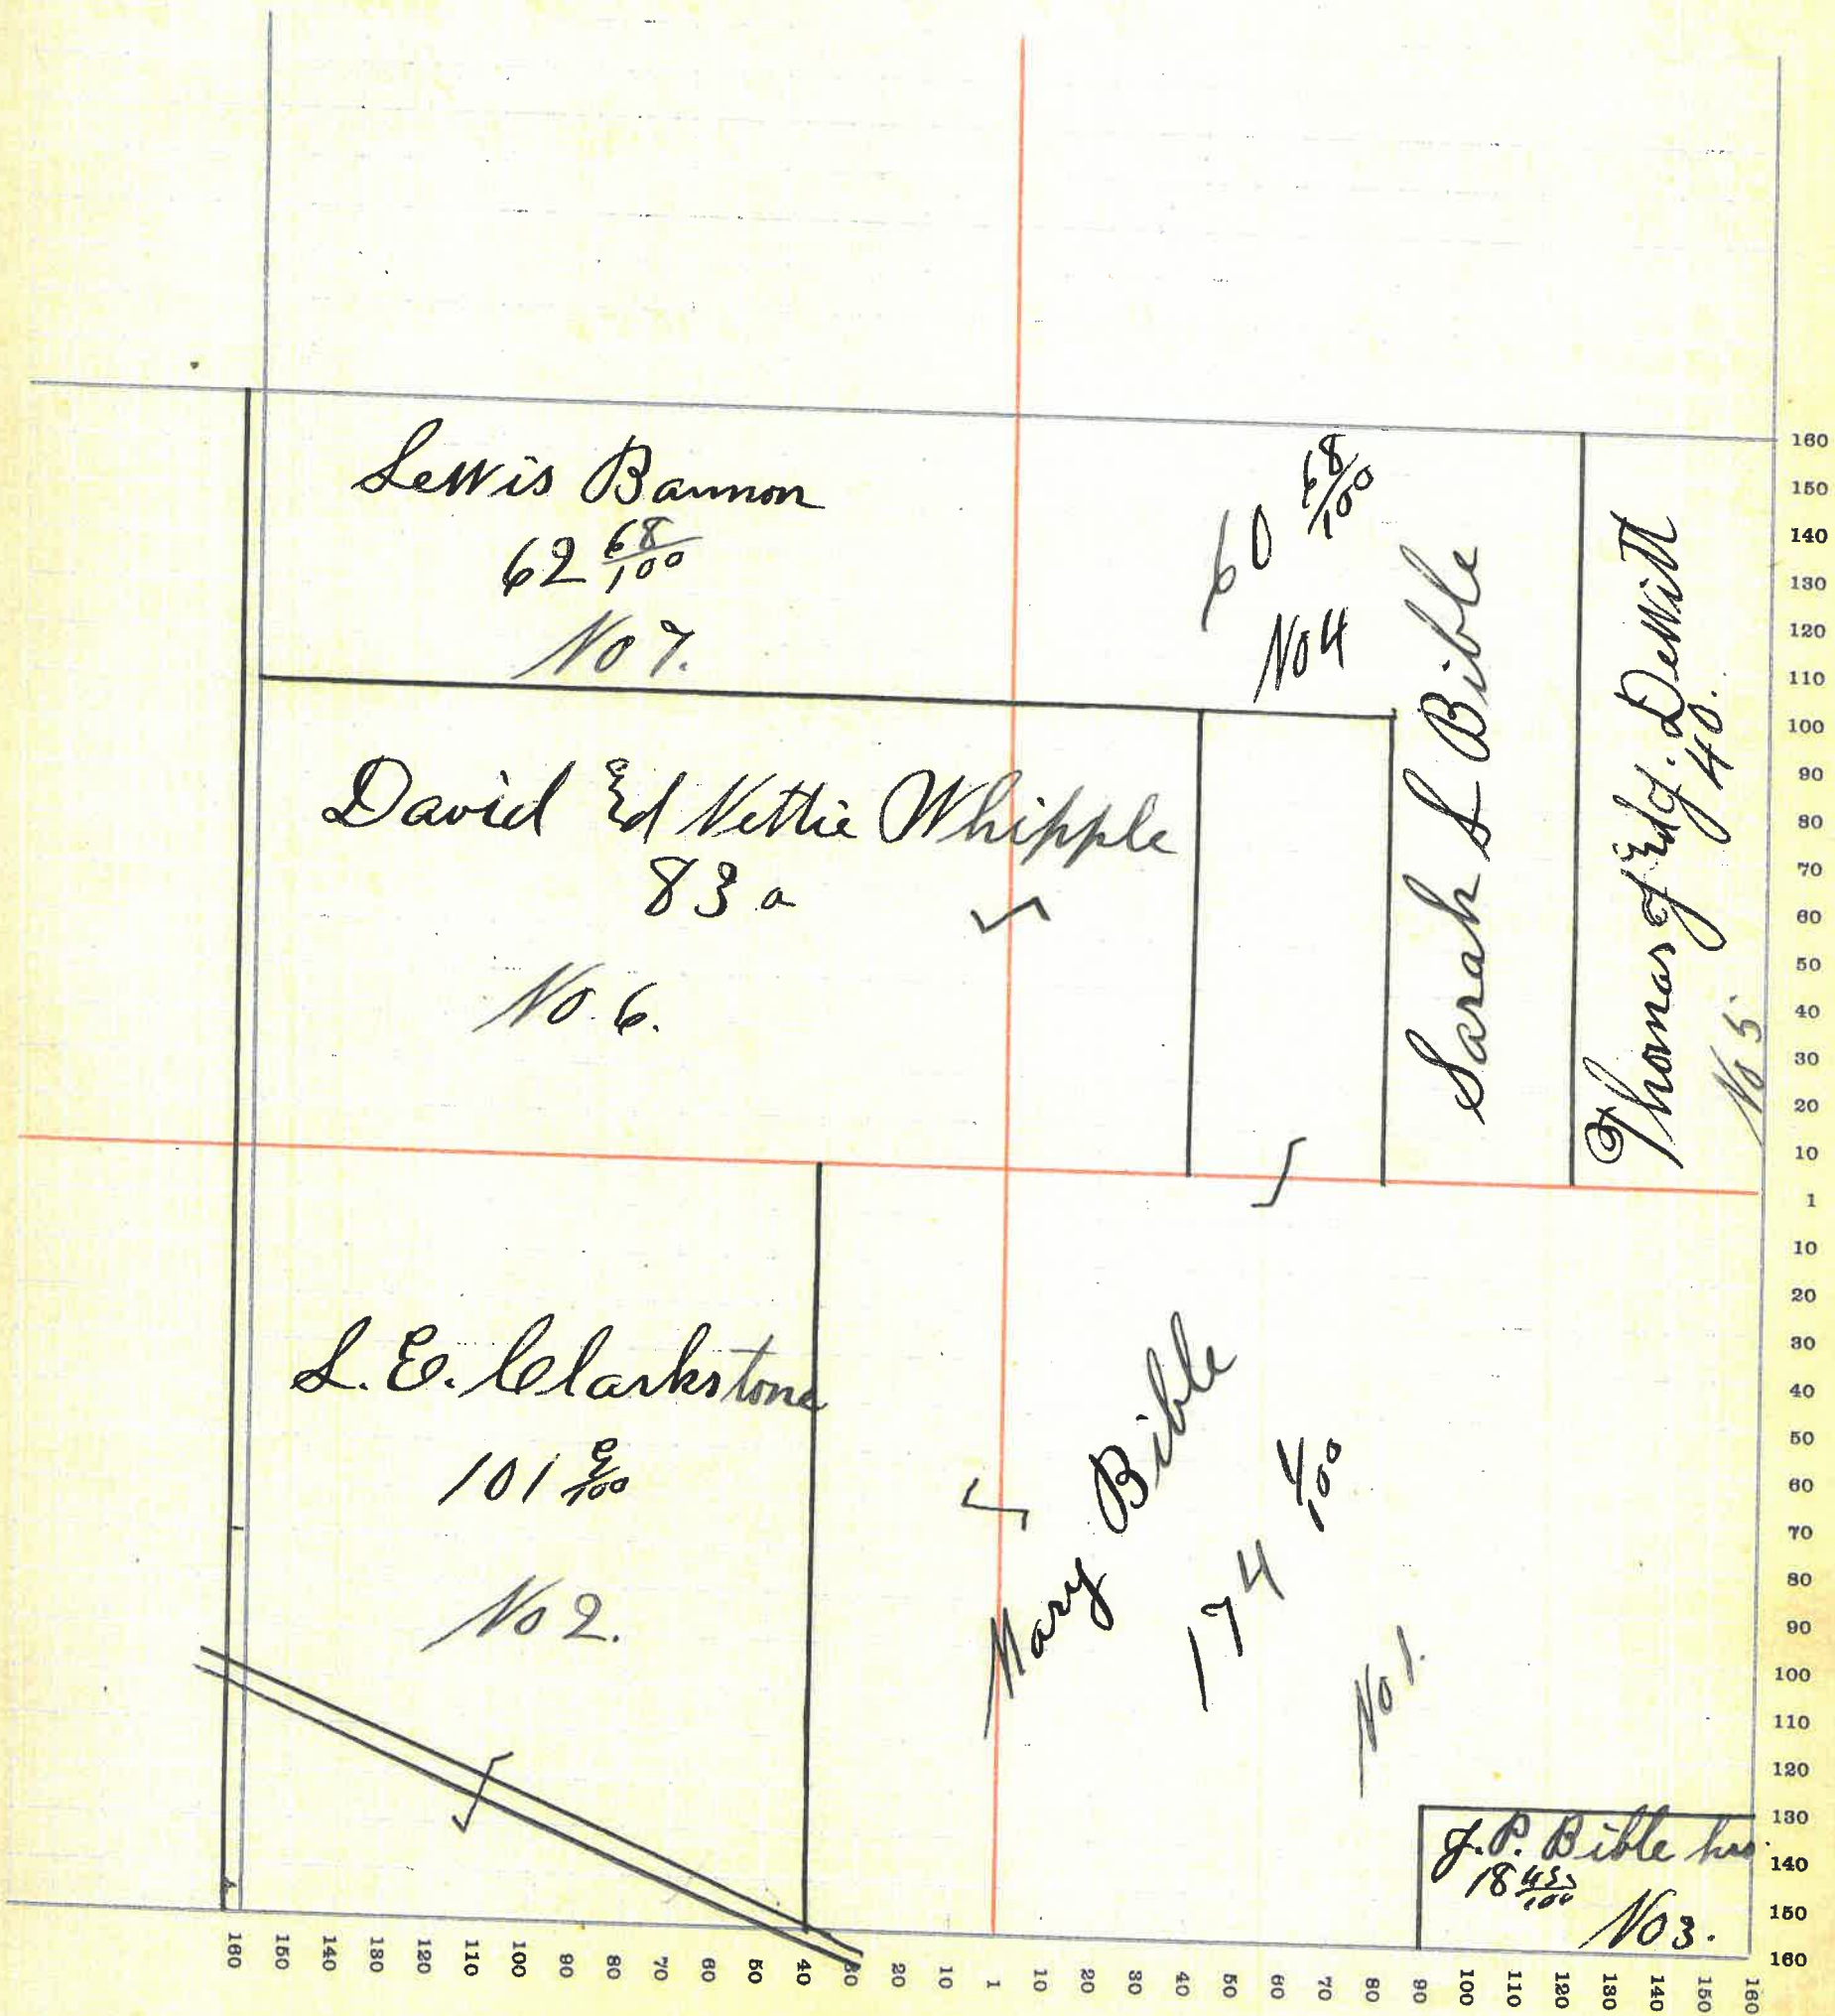 Lewis Bannon
62 68/100
No 7.
60 68/100
No 4
Sarah S Bible
Thomas J Ed J. Dewitt
40.
No 5
David Ed Nettie Whipple
83 a
No. 6.
L. E. Clarkstone
101
No 2.
Mary Bible
174 4/100
No 1.
J. P. Bible hrs.
18
No 3.
160
150
140
130
120
110
100
90
80
70
60
50
40
30
20
10
1
10
20
30
40
50
60
70
80
90
100
110
120
130
140
150
160
160 150 140 130 120 110 100 90 80 70 60 50 40 30 20 10 1 10 20 30 40 50 60 70 80 90 100 110 120 130 140 150 160